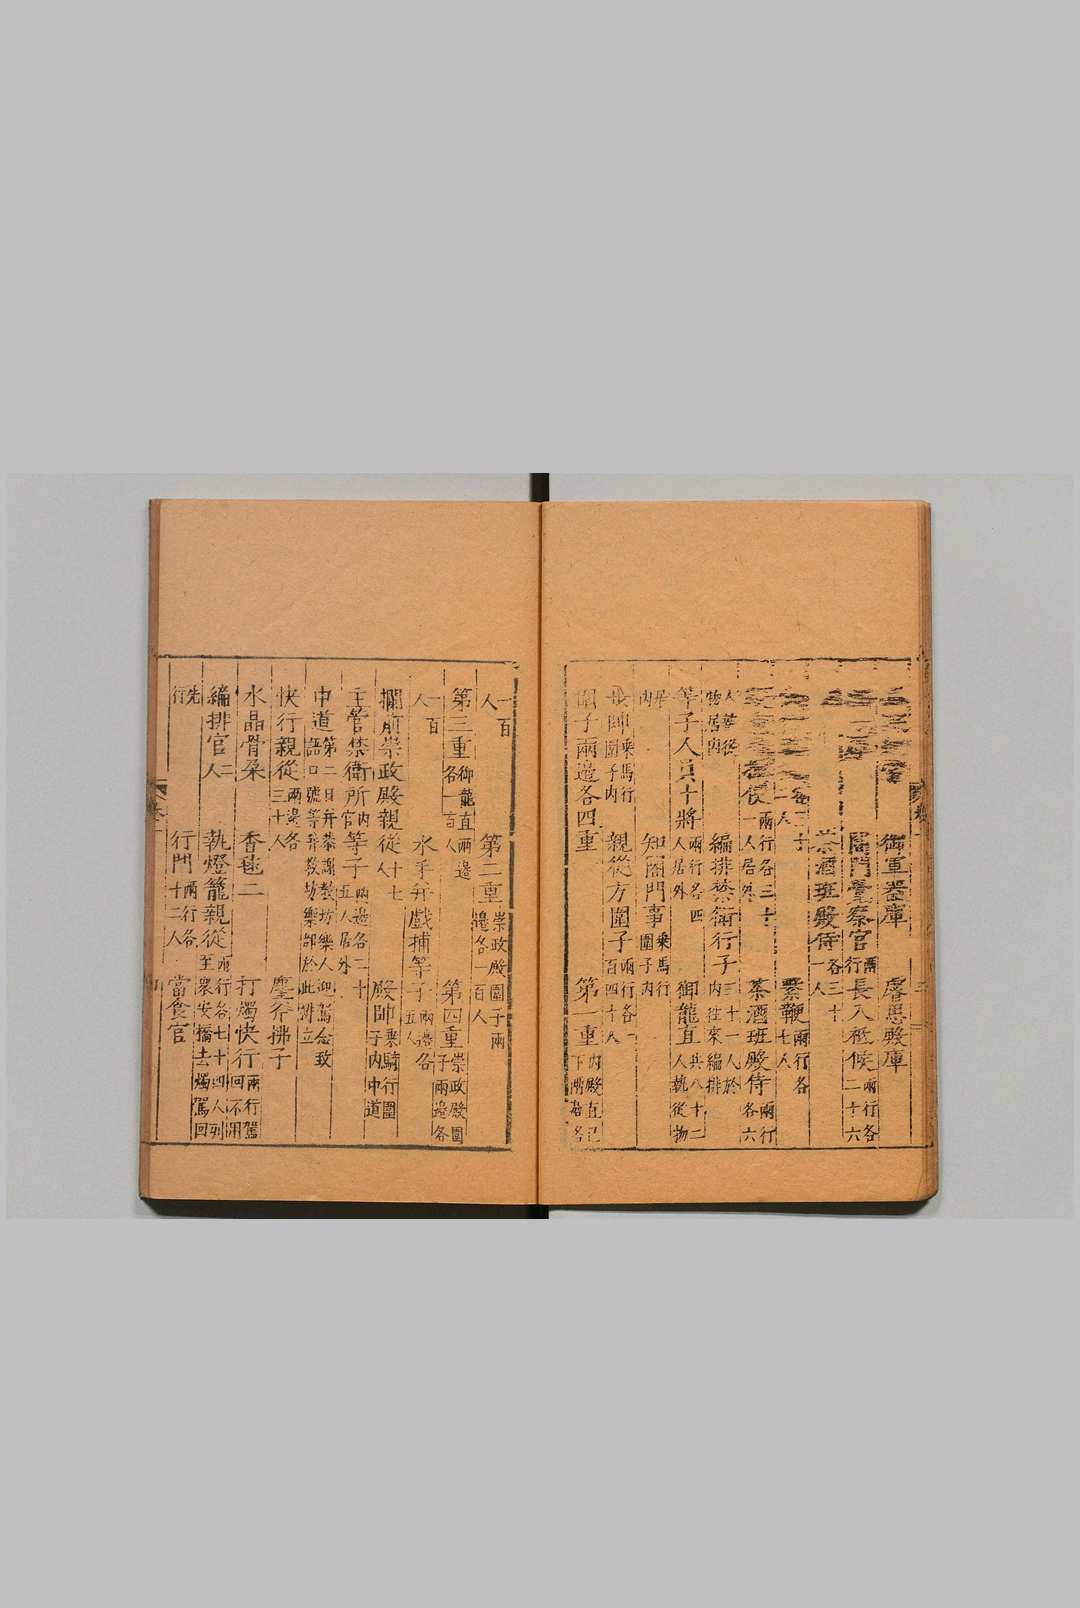 御軍器庫 御黑殿庫
閤門宣察官兩行 長入祗候兩行各二十六
茶酒班殿侍各三十一人
人 繫鞭兩行各七人
兩行各三十一人居外 茶酒班殿侍兩行各六
人從物居內 編排禁衛行子三十一人於內往來編排
等子人員十將兩行各四人居外 御龍直共八十二人執從物
居內 知閤門事乘馬行圍子內
殿帥乘馬行圍子內 親從方圍子兩行各一百四十人
圍子兩邊各四重 第一重內殿直已下兩邊各
一百人 第二重崇政殿圍子兩邊各一百人
第三重御龍直兩邊各一百人 第四重崇政殿圍子兩邊各
一百人 水手弁戲捕等子兩邊各五人
攔前崇政殿親從十七人 殿帥乘騎行圍子內中道
主管禁衛所內官等子兩邊各二十五人居外
中道第二日弁恭謝教坊樂人迎駕念致語口號等弁教坊樂部於此排立
快行親從兩邊各三十人 麈斧拂子
水晶骨朶 香毬二 打燭快行兩行駕回不用
編排官二人 執燈籠親從兩行各七十四人列至衆安橋去燭駕回
先行 行門兩行各十二人 當食官